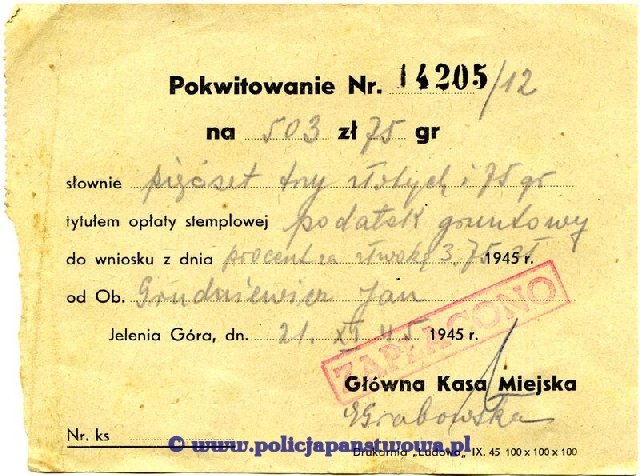 Pokwitowanie Nr. 14205/12
na 503 zł 75 gr
słownie pięćset trzy złotych i 75 gr
tytułem opłaty stemplowej podatek gruntowy
do wniosku z dnia procent za zwłokę 3,75 zł 1945 r.
od Ob. Grudniewicz Jan
Jelenia Góra, dn. 21. XI 45 1945 r.
ZAPŁACONO
Główna Kasa Miejska
Grabowska
Nr. ks
© www.policjapanstwowa.pl
Drukarnia „Ludowa” IX. 45 100 x 100 x 100